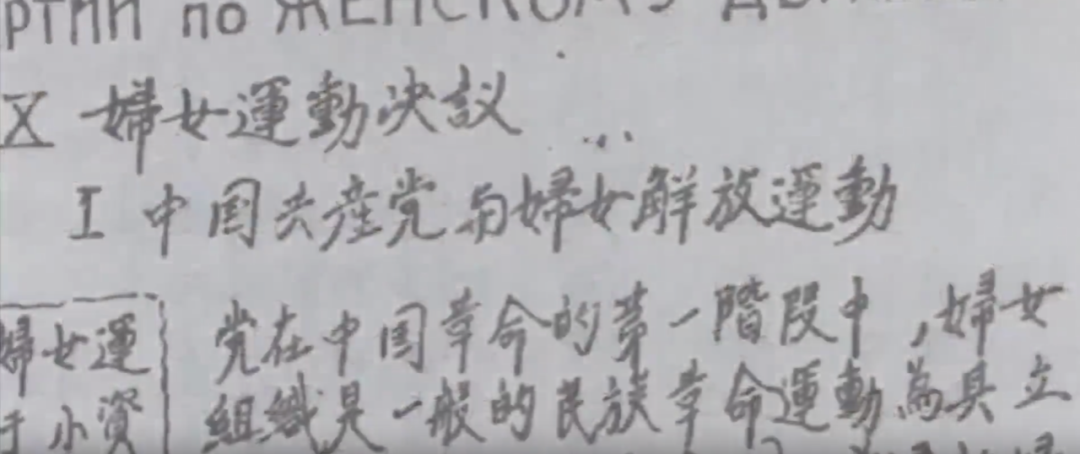 по ЖЕНСКОМУ
X 婦女運動决議
I 中国共産党与婦女解放運動
婦女運
于小資
党在中国革命的第一階段中,婦女
組織是一般的民族革命運動為其立